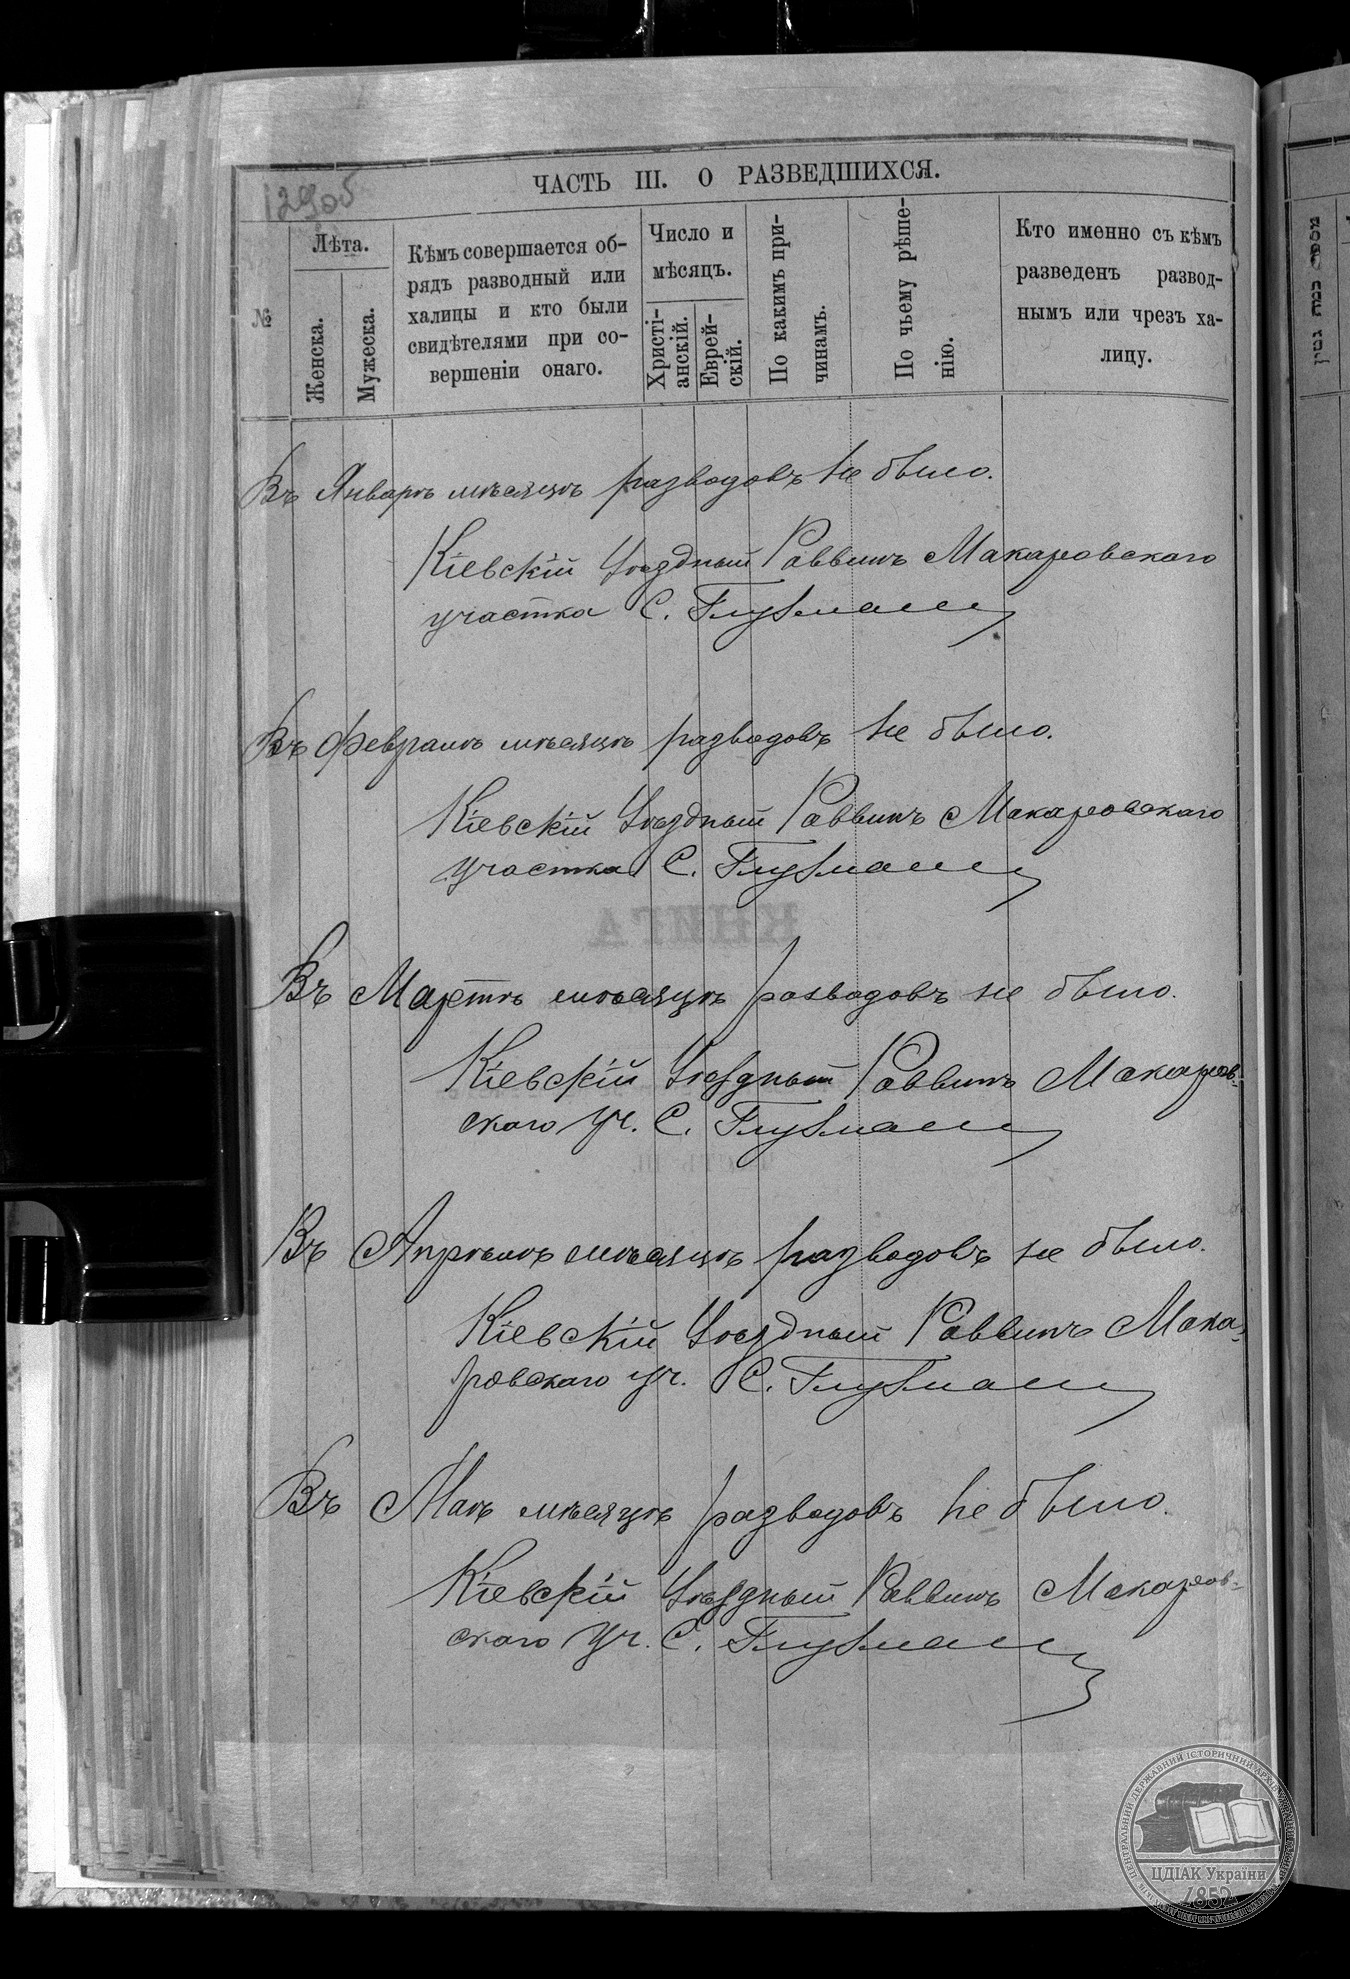 129об
ЧАСТЬ III. О РАЗВЕДШИХСЯ.
№
Лѣта.
Женска.
Мужеска.
Кѣмъ совершается об-
рядъ разводный или
халицы и кто были
свидѣтелями при со-
вершеніи онаго.
Число и
мѣсяцъ.
Христі-
анскій.
Еврей-
скій.
По какимъ при-
чинамъ.
По чьему рѣше-
нію.
Кто именно съ кѣмъ
разведенъ развод-
нымъ или чрезъ ха-
лицу.
Въ Январѣ мѣсяцѣ разводовъ не было.
Кіевскій Уѣздный Раввинъ Макаровскаго
участка С. Глузманъ
Въ Февралѣ мѣсяцѣ разводовъ не было.
Кіевскій Уѣздный Раввинъ Макаровскаго
участка С. Глузманъ
КНИГА
Въ Мартѣ мѣсяцѣ разводовъ не было.
Кіевскій Уѣздный Раввинъ Макаров-
скаго уч. С. Глузманъ
Въ Апрѣлѣ мѣсяцѣ разводовъ не было.
Кіевскій Уѣздный Раввинъ Мака-
ровскаго уч. С. Глузманъ
Въ Маѣ мѣсяцѣ разводовъ не было.
Кіевскій Уѣздный Раввинъ Макаров-
скаго уч. С. Глузманъ
מספר כמה גטין
ЦЕНТРАЛЬНИЙ ДЕРЖАВНИЙ ІСТОРИЧНИЙ АРХІВ УКРАЇНИ
ЦДІАК України
1852